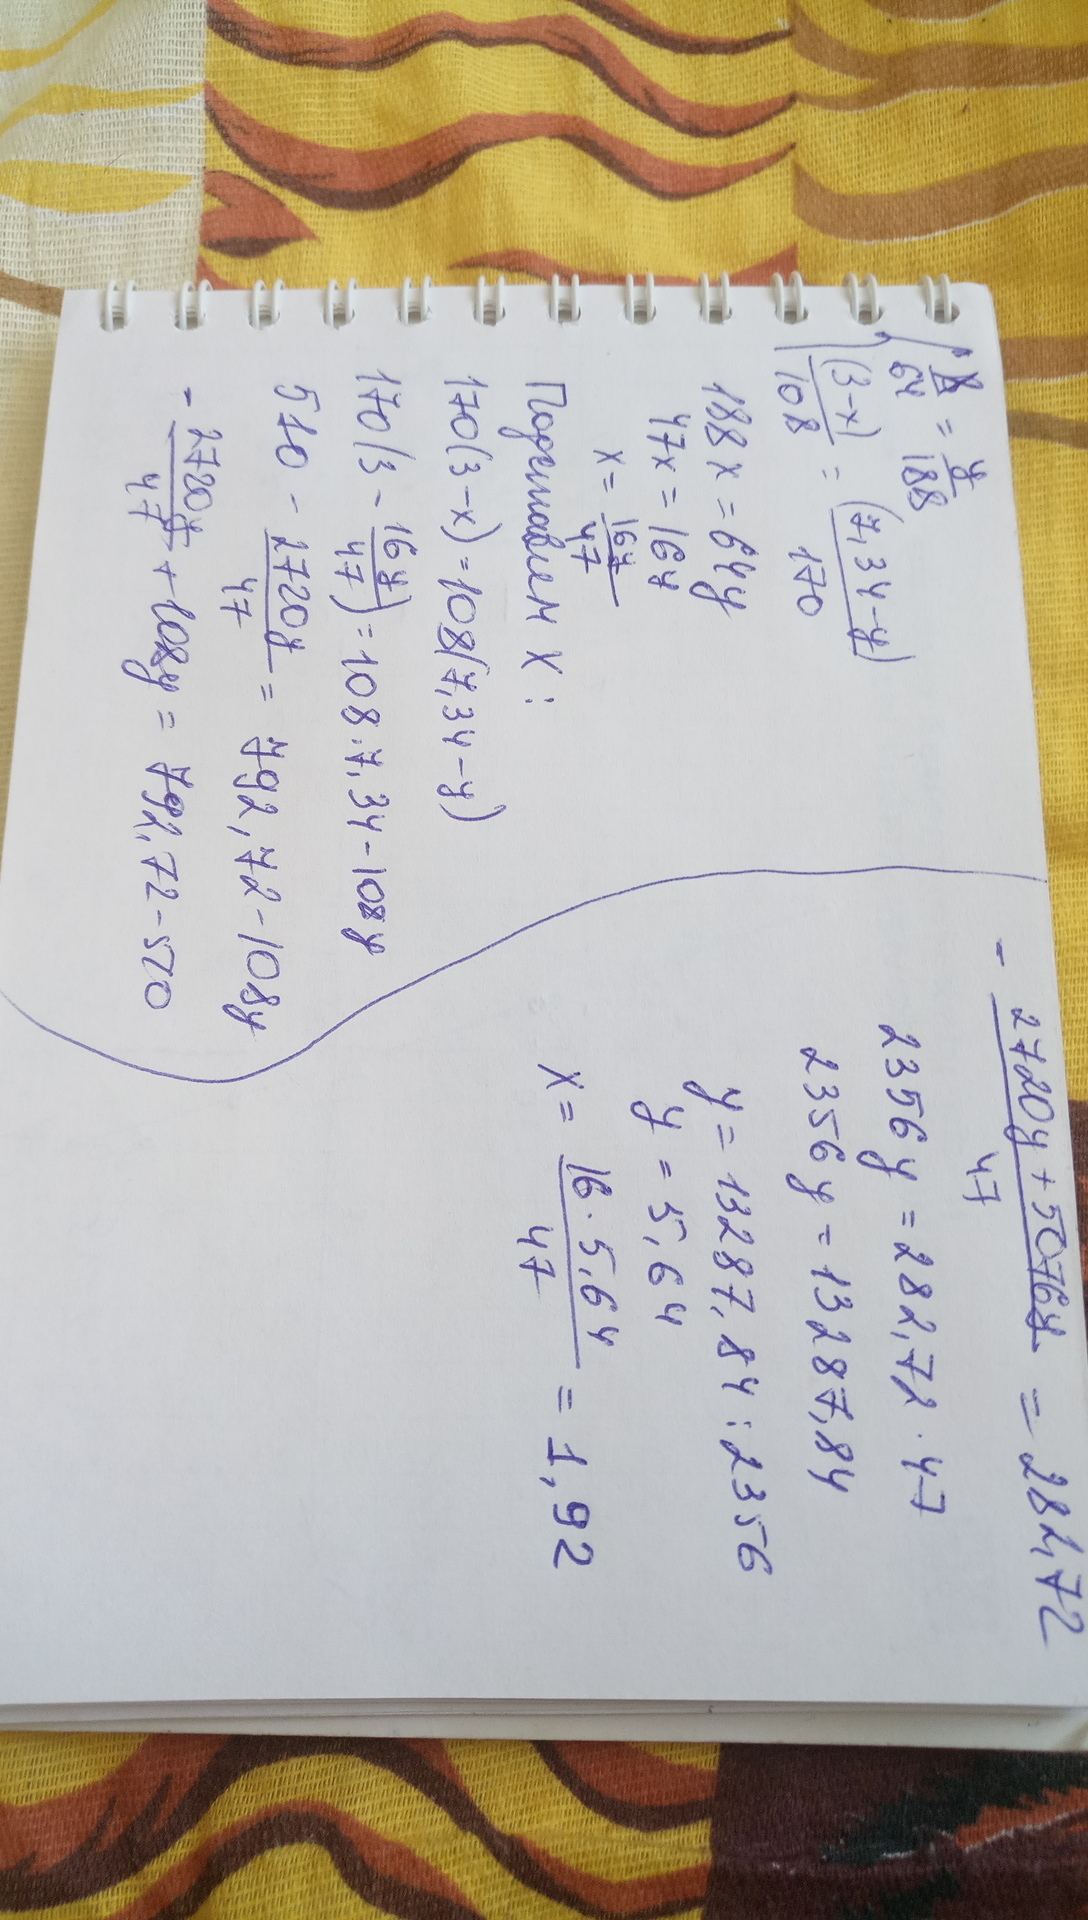 x/64 = y/188
(3-x)/108 = (7,34-y)/170
188x = 64y
47x = 16y
x = 16y/47
Подставлем X:
170(3-x)=108(7,34-y)
170(3 - 16y/47) = 108·7,34-108y
510 - 2720y/47 = 792,72-108y
- 2720y/47 + 108y = 792,72-510
- 2720y+5076y/47 = 282,72
2356y = 282,72·47
2356y = 13287,84
y = 13287,84 : 2356
y = 5,64
x = 16·5,64/47 = 1,92